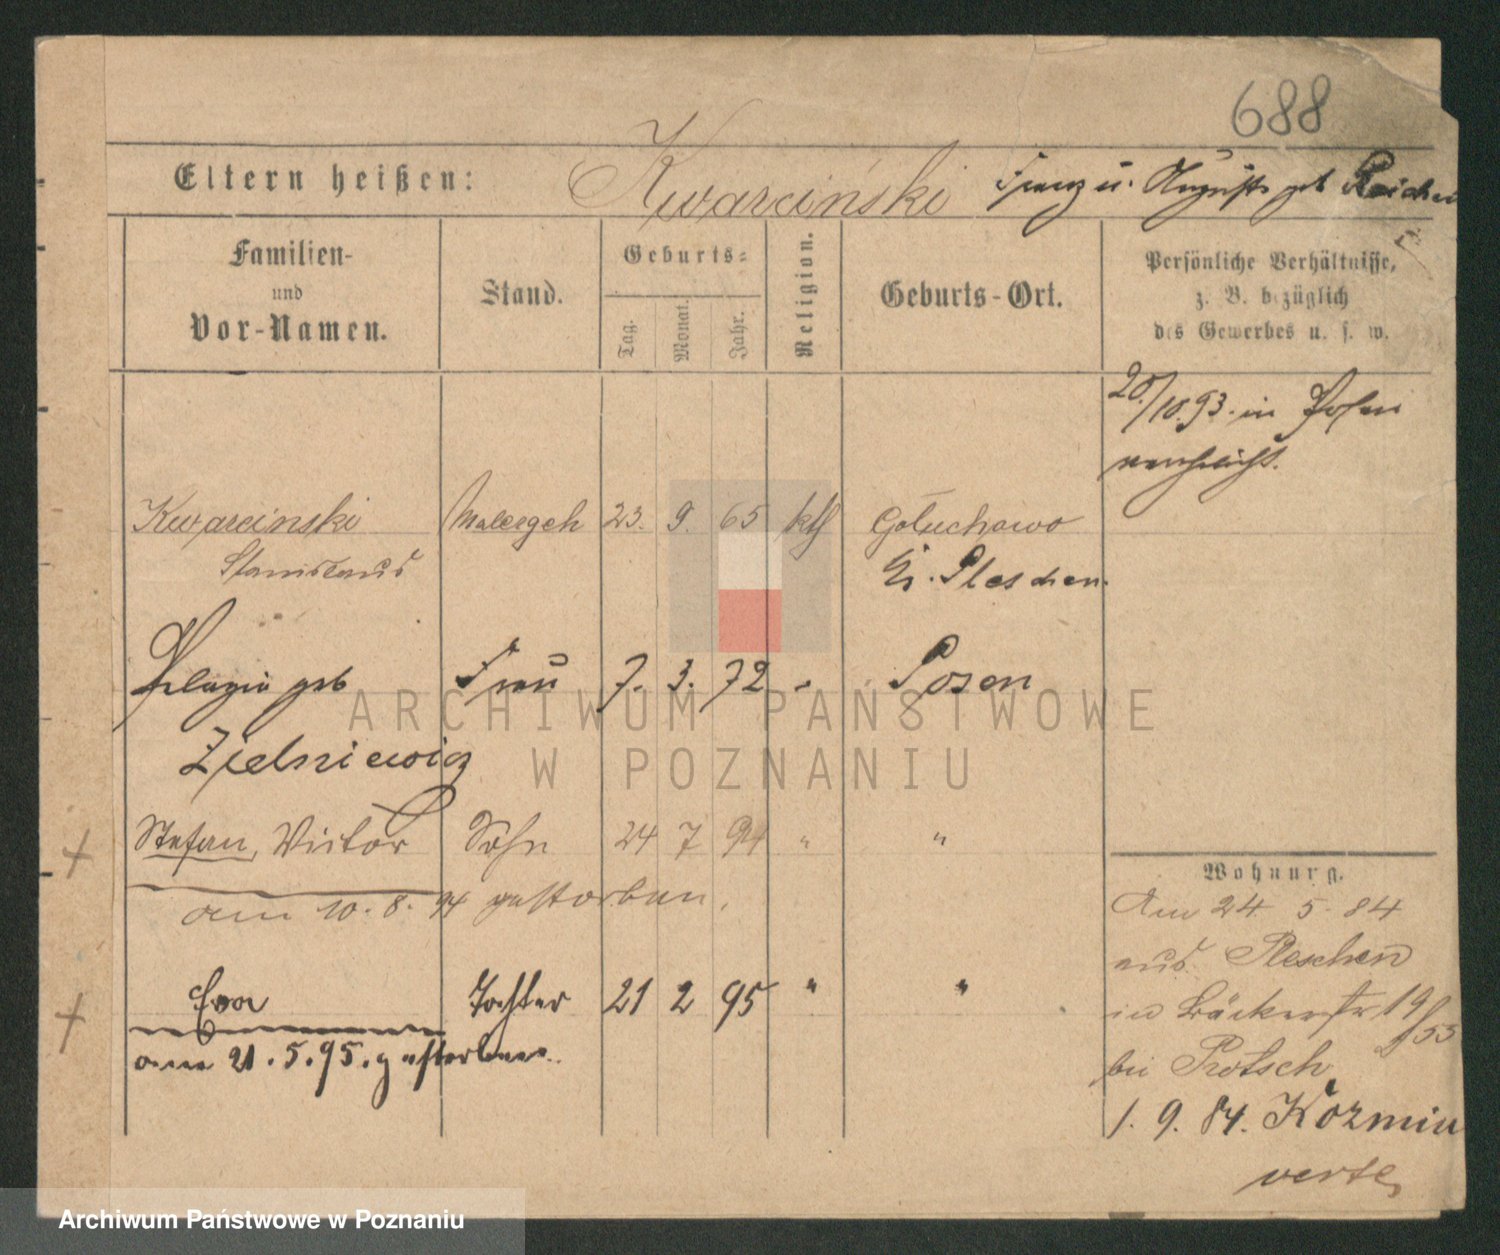 688
Eltern heißen: Kwarciński Franz u. Auguste geb Reichei
Familien- und Vor-Namen.
Stand.
Geburts-
Tag. Monat. Jahr.
Religion.
Geburts-Ort.
Persönliche Verhältnisse,
z. B. bezüglich
des Gewerbes u. s. w.
20./10.93. in Posen
verehelicht.
Kwarcinski Malergeh 23. 9. 65 kth Gołuchowo
Stanislaus Kr. Pleschen.
Pelagia geb Frau 7. 3. 72 „ Posen
Zielniewicz
Stefan, Victor Sohn 24 7 94 " "
am 10. 8. 94 gestorben.
Eva Tochter 21 2 95 " "
am 21. 5. 95. gestorben.
Wohnung.
Am 24 5. 84
aus Pleschen
in Bäckerstr 19/53
bei Protsch
1. 9. 84. Kozmin
verte
ARCHIWUM PAŃSTWOWE
W POZNANIU
Archiwum Państwowe w Poznaniu